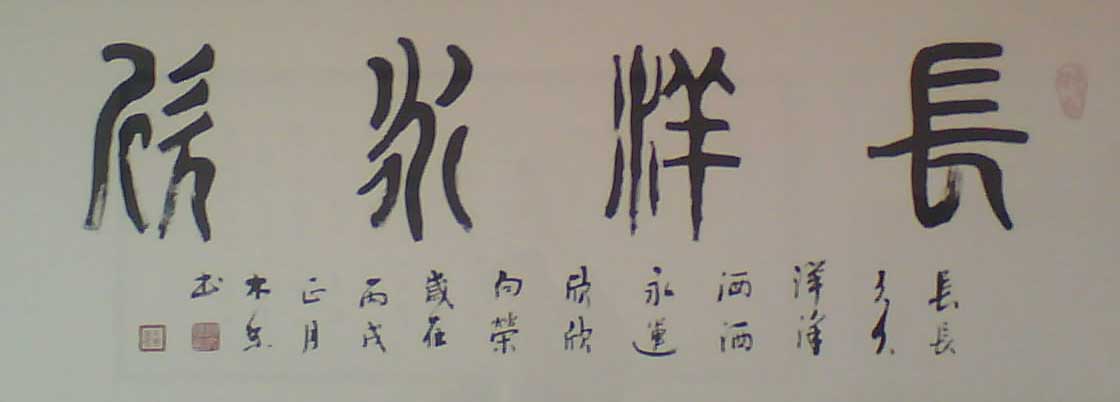 長洋永欣
長長
久久
洋洋
洒洒
永遠
欣欣
向榮
歲在
丙戌
正月
木
书